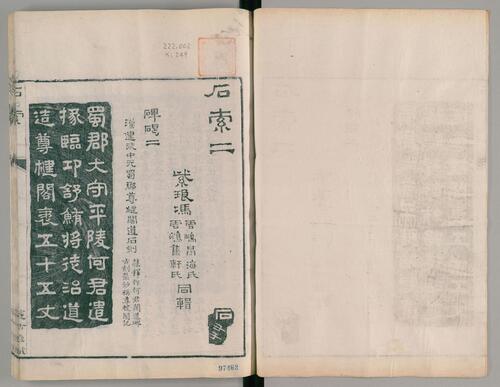 222.002
石索二
紫琅馮
雲鵬晏海氏
雲鵷集軒氏
同輯
碑碣二
漢建武中元蜀郡尊楗閣道石刻
隸釋稱何君閣道碑
蜀郡大守平陵何君遣
掾臨邛舒鮪將徒治道
造尊楗閣袤五十五丈
石索
97462